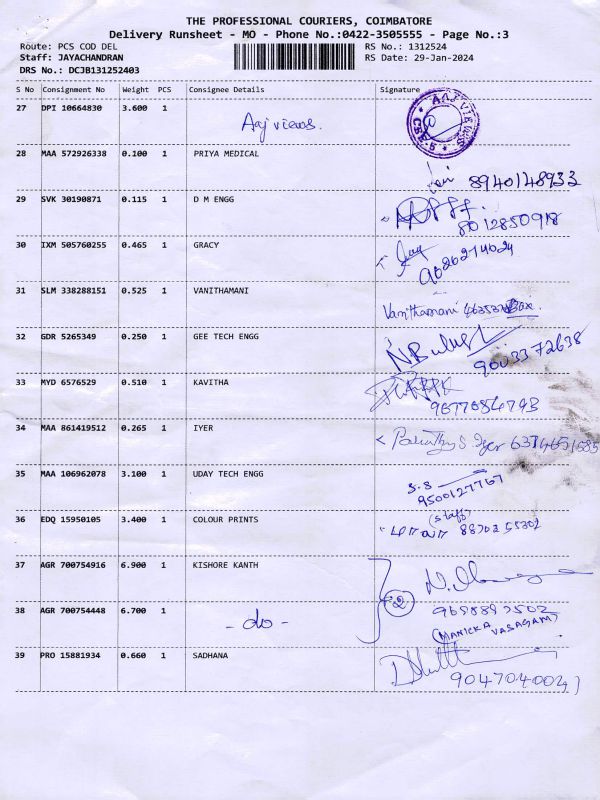 THE PROFESSIONAL COURIERS, COIMBATORE
Delivery Runsheet - MO - Phone No.:0422-3505555 - Page No.:3
Route: PCS COD DEL RS No.: 1312524
Staff: JAYACHANDRAN RS Date: 29-Jan-2024
DRS No.: DCJB131252403
S No Consignment No Weight PCS Consignee Details Signature
27 DPI 10664830 3.600 1 Aaj views. AAJ VIEWS CBE-9
28 MAA 572926338 0.100 1 PRIYA MEDICAL
8940148933
29 SVK 30190871 0.115 1 D M ENGG
8012850918
30 IXM 505760255 0.465 1 GRACY
31 SLM 338288151 0.525 1 VANITHAMANI
Vanithamani
32 GDR 5265349 0.250 1 GEE TECH ENGG
9003372638
33 MYD 6576529 0.510 1 KAVITHA
34 MAA 861419512 0.265 1 IYER
Iyer 6374651585
35 MAA 106962078 3.100 1 UDAY TECH ENGG
S.S
9500127767
36 EDQ 15950105 3.400 1 COLOUR PRINTS
(staff)
37 AGR 700754916 6.900 1 KISHORE KANTH
2
38 AGR 700754448 6.700 1 - do -
(MANICKA VASAGAM)
39 PRO 15881934 0.660 1 SADHANA